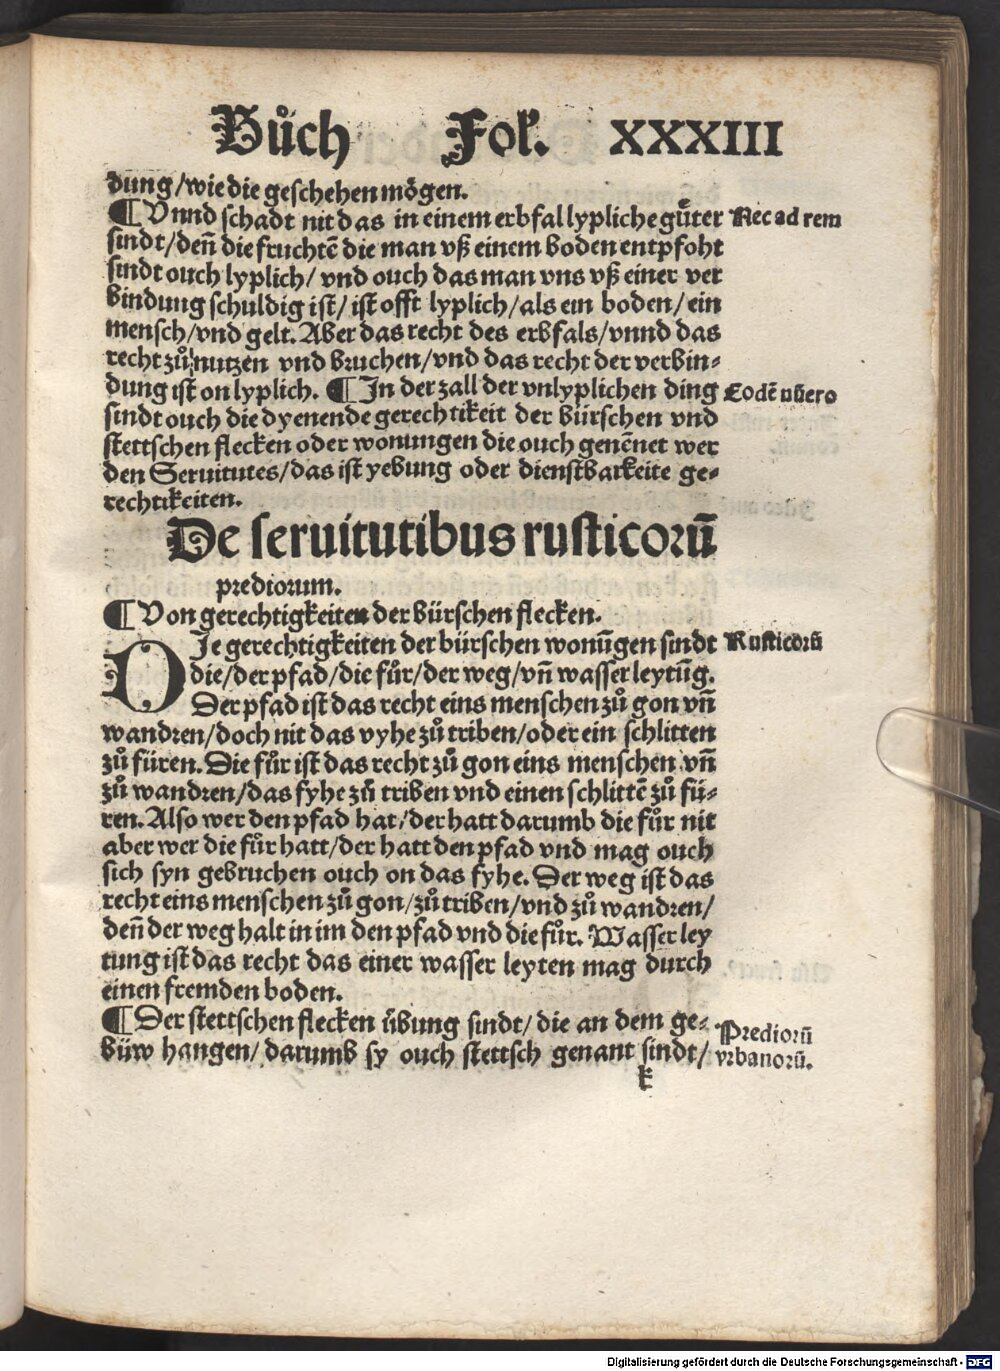 Bůch Fol. XXXIII
dung/wie die geschehen mögen.
¶ Vnnd schadt nit das in einem erbfal lypliche gu̇ter
Nec ad rem
sindt/deñ die fruchtē die man vß einem boden entpfoht
sindt ouch lyplich/ vnd ouch das man vns vß einer ver
bindung schuldig ist/ ist offt lyplich/als ein boden/ein
mensch/vnd gelt. Aber das recht des erbfals/vnnd das
recht zů nutzen vnd bruchen/vnd das recht der verbin⸗
dung ist on lyplich. ¶ In der zall der vnlyplichen ding
Eodē nūero
sindt ouch die dyenende gerechtikeit der bürschen vnd
stettschen flecken oder wonungen die ouch genēnet wer
den Seruitutes/das ist yebung oder dienstbarkeite ge⸗
rechtikeiten.
De seruitutibus rusticorū
prediorum.
¶ Von gerechtigkeiten der bürschen flecken.
DIe gerechtigkeiten der bürschen wonūgen sindt
Rusticorū
die/der pfad/die fůr/der weg/vñ wasser leytūg.
Der pfad ist das recht eins menschen zů gon vñ
wandren/doch nit das vyhe zů triben/oder ein schlitten
zů füren. Die fůr ist das recht zů gon eins menschen vñ
zů wandren/das fyhe zů triben vnd einen schlittē zů fü⸗
ren. Also wer den pfad hat/der hatt darumb die fůr nit
aber wer die fůr hatt/der hatt den pfad vnd mag ouch
sich syn gebruchen ouch on das fyhe. Der weg ist das
recht eins menschen zů gon/zů triben/vnd zů wandren/
deñ der weg halt in im den pfad vnd die fůr. Wasser ley
tung ist das recht das einer wasser leyten mag durch
einen fremden boden.
¶ Der stettschen flecken übung sindt/ die an dem ge⸗
Prediorū
büw hangen/ darumb sy ouch stettsch genant sindt/
vrbanorū.
k
Digitalisierung gefördert durch die Deutsche Forschungsgemeinschaft - DFG